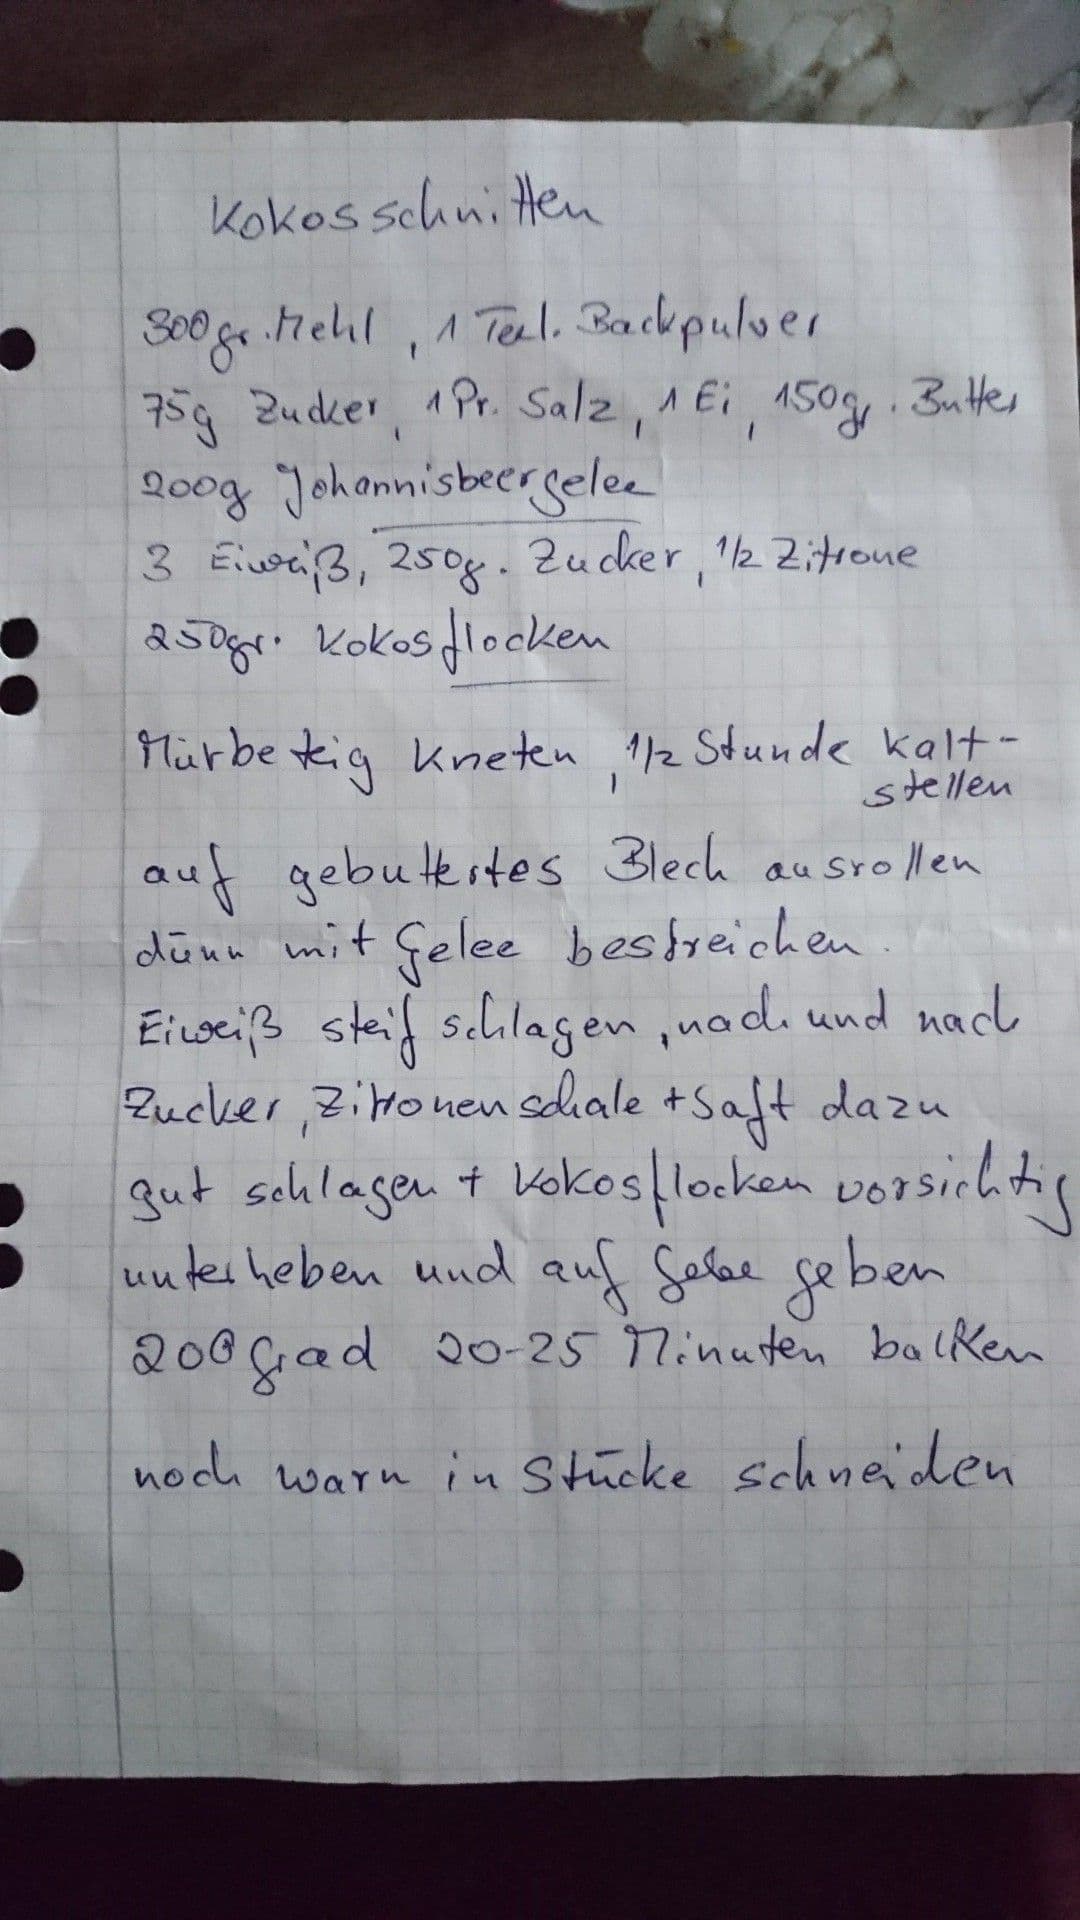 Kokosschnitten
300gr. Mehl, 1 Teel. Backpulver
75g Zucker, 1 Pr. Salz, 1 Ei, 150gr. Butter
200g Johannisbeergelee
3 Eiweiß, 250g. Zucker, 1/2 Zitrone
250gr. Kokosflocken
Mürbeteig kneten, 1/2 Stunde kalt-
stellen
auf gebuttertes Blech ausrollen
dünn mit Gelee bestreichen.
Eiweiß steif schlagen, nach und nach
Zucker, Zitronenschale + Saft dazu
gut schlagen + Kokosflocken vorsichtig
unterheben und auf Gelee geben
200 Grad 20-25 Minuten backen
noch warm in Stücke schneiden